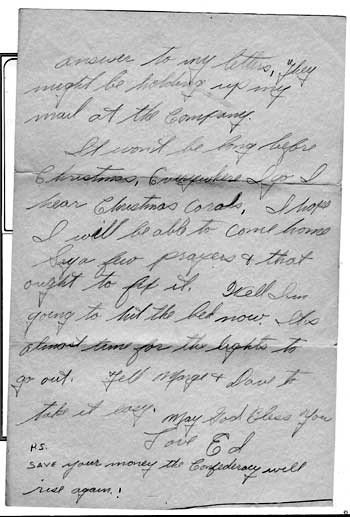 answer to my letters, They
might be holding up my
mail at the Company.
It won't be long before
Christmas, Everywhere I go I
hear Christmas Carols, I hope
I will be able to come home
Say a few prayers & that
ought to fix it. Well I'm
going to hit the bed now. It's
almost time for the lights to
go out. Tell Marge & Dave to
take it easy.
May God Bless You
Love Ed
P.S.
SAVE your money the Confederacy will
rise again!